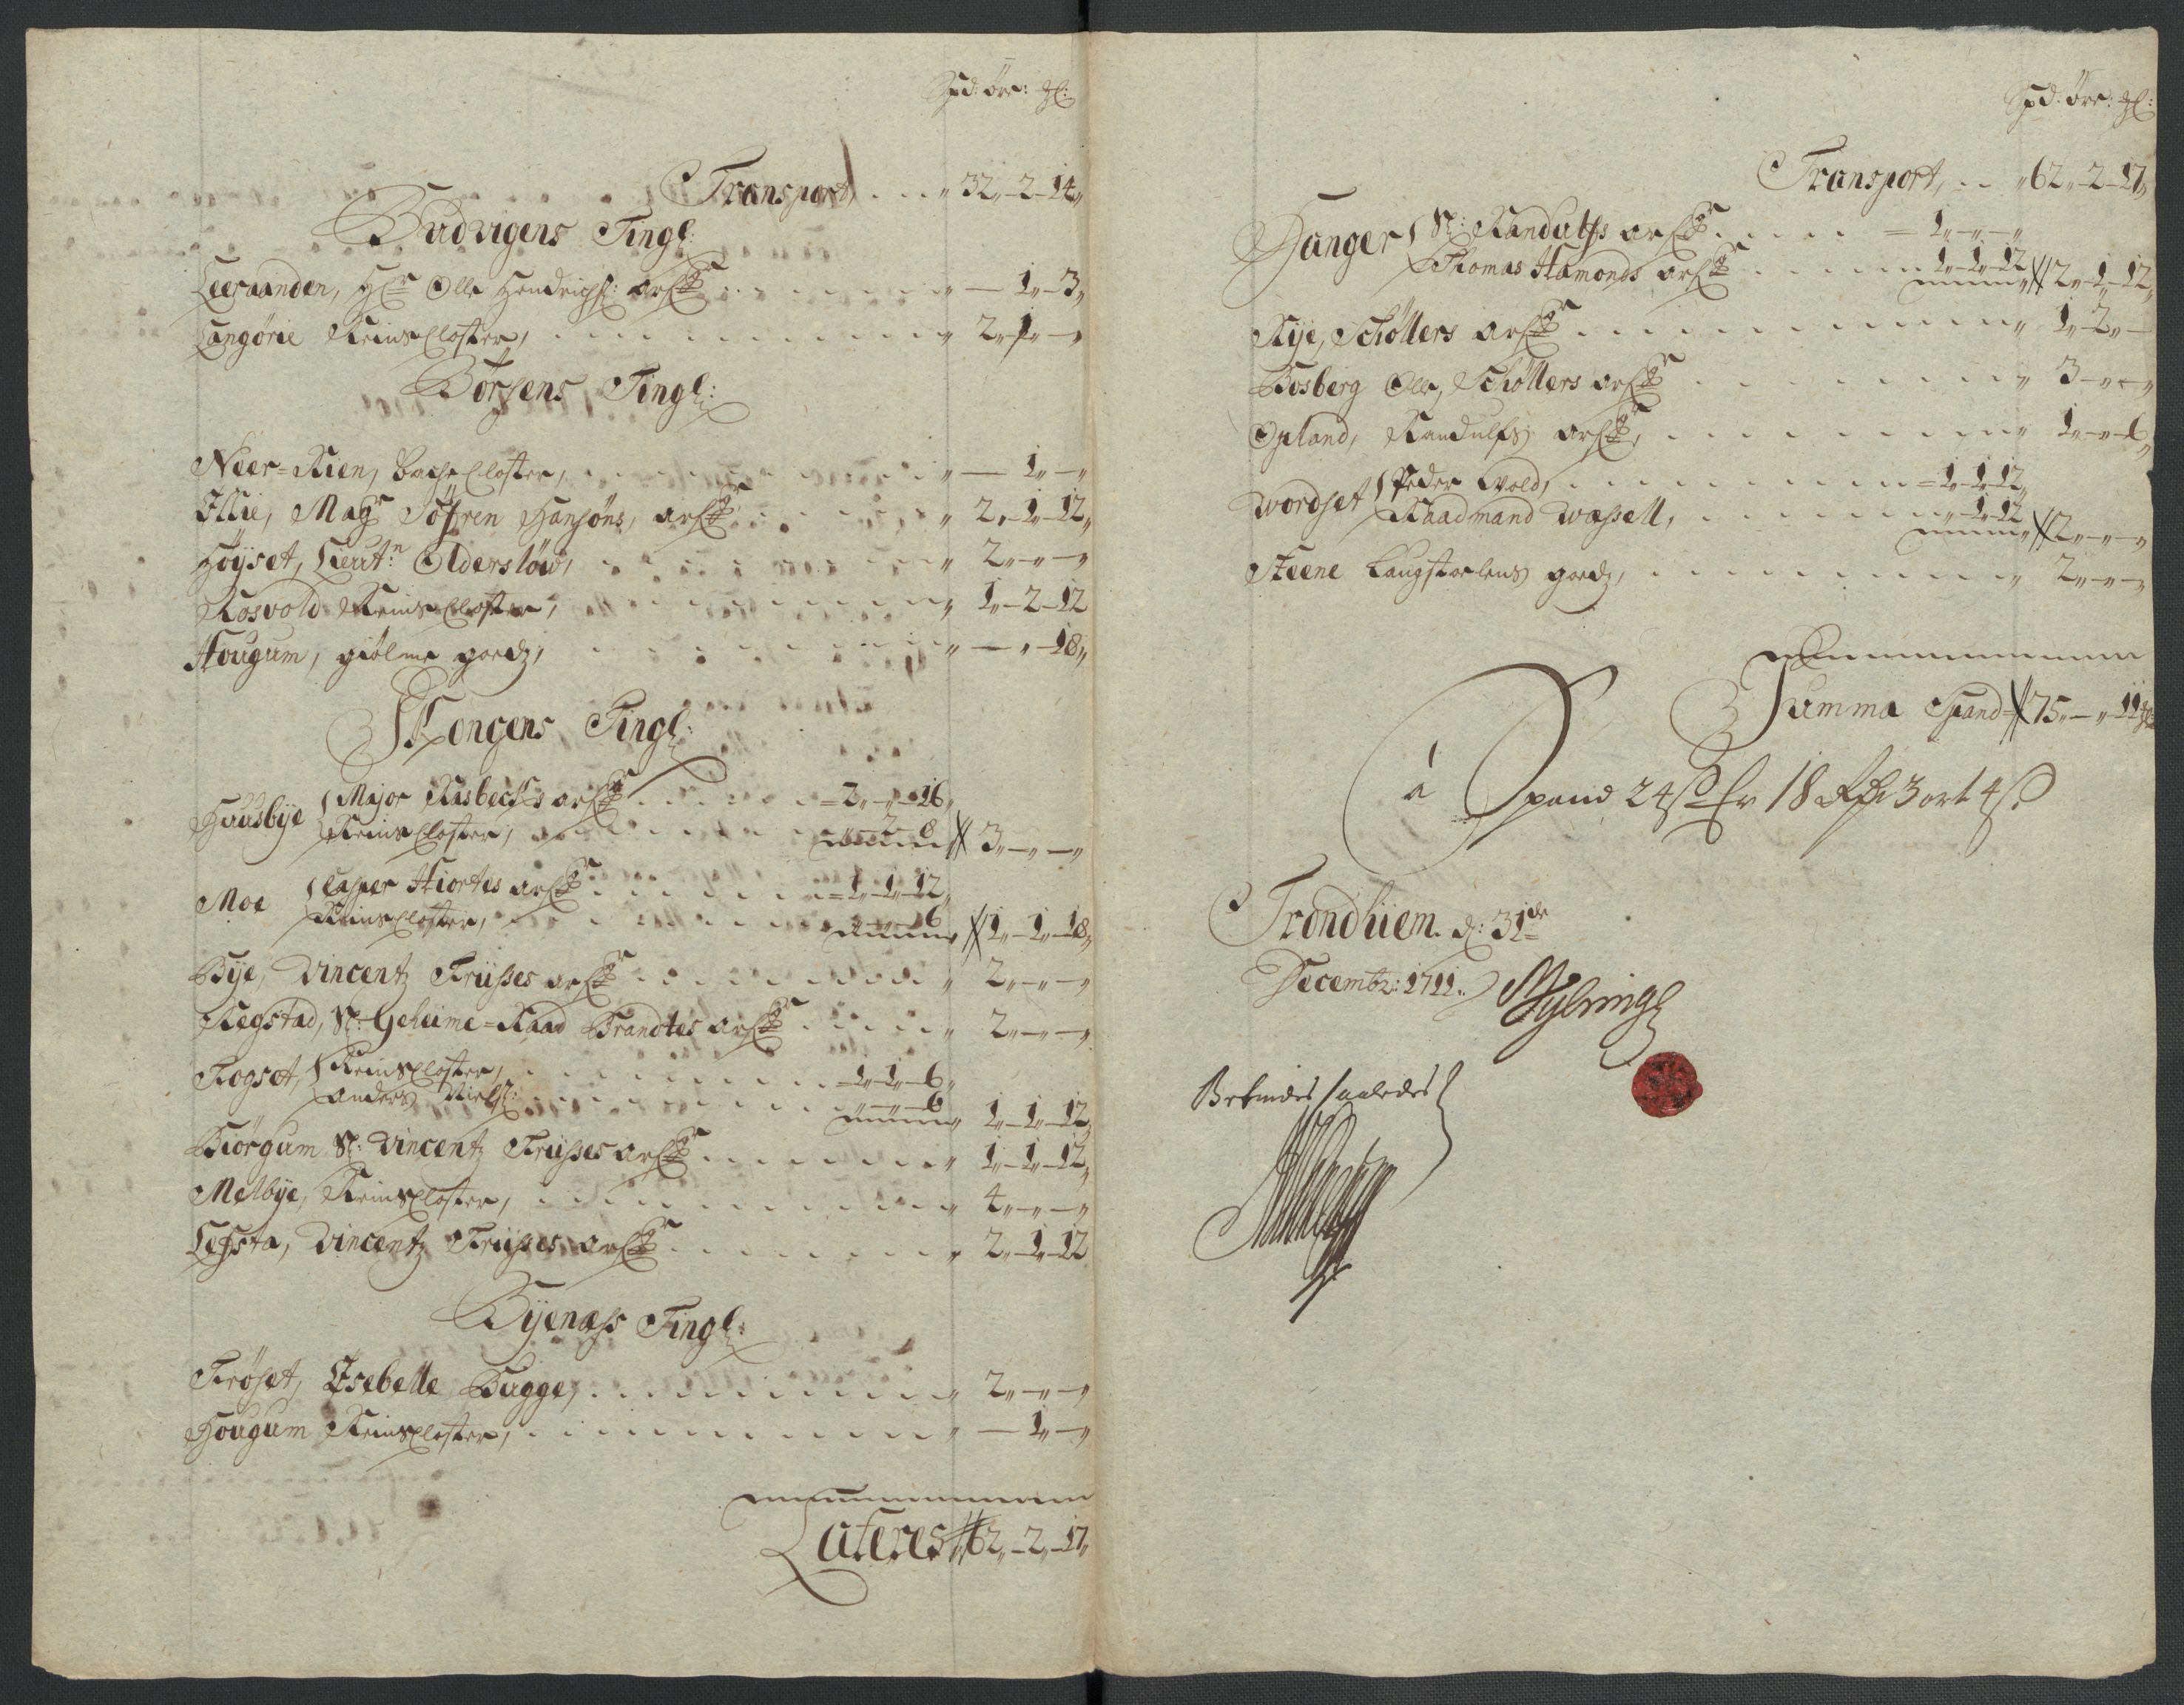 Spd: öre: gl:
Transport, . . . „ 32„ – 2 – 14„
Budvigens Tingl:
Leeraanden, Hr Olle Hendrichs: arf . . . „ — 1„ – 3„
Langörie Reins Closter, . . . „ 2„ – 1„ – „
Börsens Tingl:
Neer-Rien, Bache Closter, . . . „ — 1„ – „
Ellie, Magr Söfren Hansöns, arf . . . „ 2„ – 1„ – 12„
Höyset, Lieutn: Olderslöw, . . . „ 2„ – „ – „
Rosvold Reins Closter, . . . „ 1„ – 2 – 12
Hougum, giölme goedz, . . . „ — „ – 18„
Skongens Tingl:
Huusbye { Major Rasbechs arf . . . = 2„ – „ – 16„
Reins Closter, . . . „ – 2 – 8 3„ – „ – „
Moe { Casper Hiortes arf . . . = 1„ – 1„ – 12„
Reins Closter, . . . 6 1„ – 1„ – 18„
Bye, Vincentz Trusses arf . . . „ 2„ – „ – „
Regstad, Sl: Geheime-Raad Brandtes arf . . . „ 2„ – „ – „
Rogset, { Reins Closter, . . . = 1„ – 1„ – 6„
Anders Niels: . . . „ – „ – 6 1„ – 1„ – 12„
Biörgum Sl: Vincentz Trusses arf . . . „ 1„ – 1„ – 12„
Melbye, Reins Closter, . . . „ 4„ – „ – „
Lefsta, Vincentz Trusses arf . . . „ 2„ – 1„ – 12
Byenæss Tingl:
Fröset, Isebelle Bugge, . . . „ 2„ – „ – „
Hougum Reins Closter, . . . „ — 1„ – „
Lateres 62„ – 2„ – 17„
Spd: öre: gl:
Transport, . . „ 62„ – 2 – 17„
Hanger { Sl: Randulfs arf . . . = 1„ – „ – „
Thomas Hamonds arf . . . 1„ – 1„ – 12 2„ – 1„ – 12„
Rye, Schöllers arf . . . „ 1„ – 2„ –
Bosberg Olle, Schöllers arf . . . „ 3 – „ – „
Opland, Randulfs arf, . . . „ 1„ – „ – 6„
Wordset { Peder Wold, . . . = 1„ – 1„ – 12
Raadmand Wessell, . . . „ – 1„ – 12 2„ – „ – „
Steene Laugstoelens goedz, . . . „ 2„ – „ – „
Summa Spand 75„ – „ – 11 gl
à Spand 24 s Er 18 Rdr 3 ort 4 s
Trondhiem d: 31de
Decembr: 1711.
Befindes saaledes